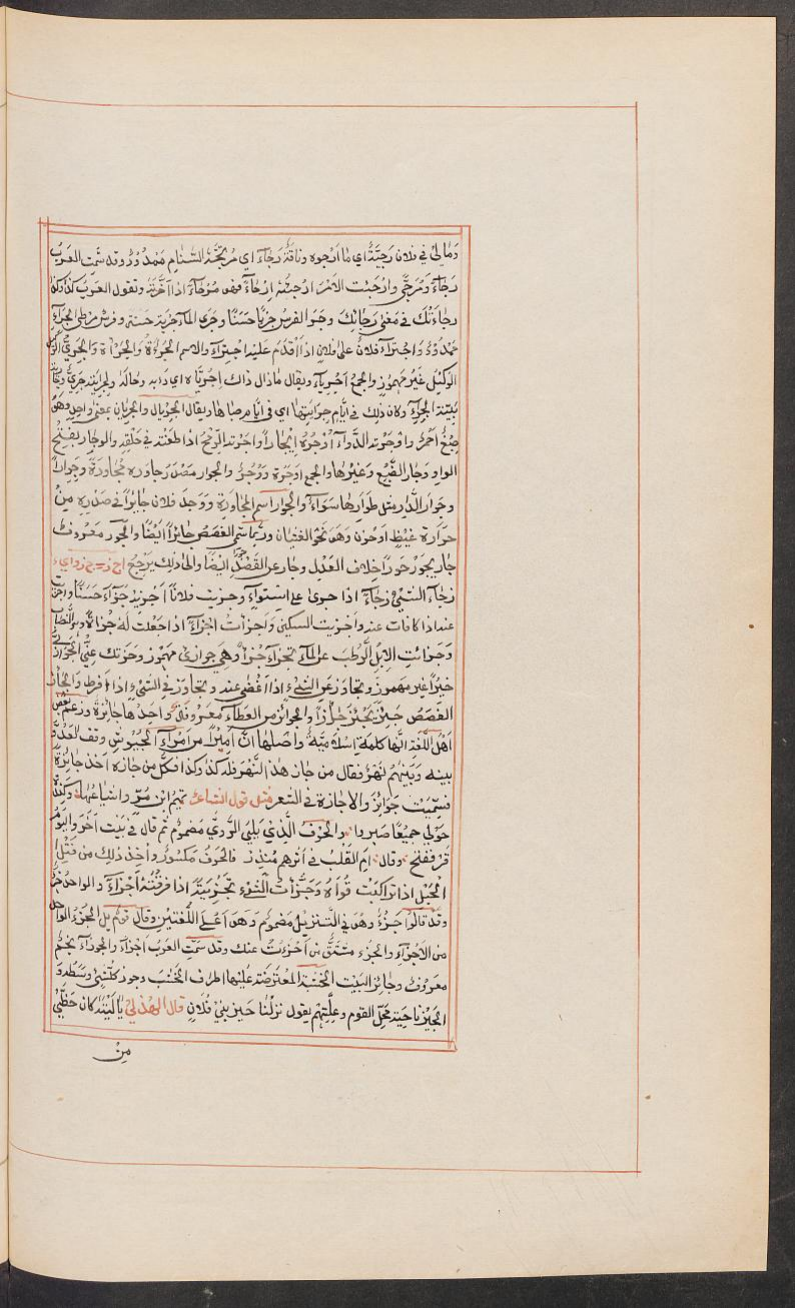 وَمالِي في فلان رَجيَّةٌ اي ما اَرجوه وناقةٌ رَجاءٌ اي مُرتجّةُ السَّنام مَمْدُودٌ وقد سَمَّتِ العَربُ
رَجاءً ومُرَجّى وارجَيت الاَمْرَ ارْجَيْتُهُ اِرْجاءً فهو مُرْجاءٌ اذا اَخَّرتَهُ وتقول العَرَبُ كذا وكذا
رجاءَتكَ في مَعْنى رَجائِكَ وجَرَى الفَرسُ جَرْيًا حَسَنًا وجَرَى الماءُ جَرْيةً حَسَنةً وفرسٌ
مَمْدُودٌ واجْتَراَ فلانٌ عَلى فلانٍ اذا اَقْدَمَ عَليه اجْتِراءً والاسم الجُرْءَةُ والجُرْاَة والجَرِيُّ
الوَكيلُ غَيرُ مَهموزٍ والجَمعُ اَجْرِياءُ ويقال مازال ذاك اِجْرِيَّاه اي دَابه وحالَهُ ولجارية جَرِيُّ
بَيّنة الجِراءِ وكان ذلك في اَيّامِ جَرائِها اي في ايّام صِباها ويقال الجِرْيال والجِريان بمعنى واحدٍ وهو
صِبْغٌ اَحْمَرُ واوْجَرْته الدَّواءَ اُوْجِرُهُ اِيْجارًا واوجَرته الرُّمْحَ اذا طعَنْته في حَلْقِه والوِجار بفتح
الواو وِجار الضَّبُعِ وَغَيْرِها والجمع اَوْجِرَة ووُجُرٌ والجوار مَصْدَر جاوَره مُجاوَرةً وجِوارًا
وجوار الدّار مثل طَوارِها سَوَاءٌ والجوار اسم المجاورةِ ووَجَد فلان جائِرًا في صَدره مِنْ
حَرارة غَيْظٍ اَو حُزن وَهو نَحوُ الغَثَيان وربّما سُمّي الغَصَصُ جائِرًا اَيضًا والجَور مَعروفٌ
جار يجورُ جَورًا خلاف العَدْل وجار عن القَصْدِ ايضًا والى ذلك يَرْجعُ ج ز واي
زجاءَ الشَّيْءُ زَجاءً اذا جَرى على استِواءٍ وجزيت فلانًا اَجْزيه جَزاءً حَسَنًا
عنه اذا كافات عنه واجْزيت السكّين وَاجزاتُ اجْزاءً اذا جَعلت لَهُ جُزاَةً
وَجَزاتِ الاِبلُ بالرُّطْبِ عن الماءِ تَجزاءُ جُزْاً وهي جوازئ مهموز وجَزتك عنّي الجَوازِي
خيرًا غير مهموز وتجاوز عن الشيءِ اذا اَغْضى عنه وتجاوَز في الشيْءِ اذا اَفرط والجاز
الغَصَصُ جَئِزَ يَجْئَزُ جَأَزًا والجوائز من العَطاءِ مَعْروفَةٌ واحِدُها جائِزَة وزعم بعض
اَهْلِ اللُّغة انّها كلمةٌ اِسلاميّةٌ واصْلها انّ اَميرًا من اُمَراءِ الجُيُوشِ وقف العَدُوَّ
بينه وَبَيْنَهُمْ نَهَرٌ فقال من جاز هٰذا النَّهرَ فله كذا وكذا فكلّ من جازه اَخذ جائزَةً
فسُمّيت جَوائِزُ والاجازة في الشعر فمثل قول الشاعر تميمُ ابن مُرٍّ واشياعُها وكِندة
حَوْلي جَميعًا صبروا والحَرف الَّذي يَلي الرَّويَّ مَضمومٌ ثم قال في بَيْت آخَر واليوم
قَر ففتح وقال اِم القلبُ في اَثَرهم مُنذِر فالحرفُ مَكسُورٌ واُخذ ذلك من فَتْلِ
الحَبْلِ اذا تراكَبَتْ قُواهُ وَجَزَّأتُ الشَّيءَ تجزئة اذا فرقْتُهُ اَجْزاءً والواحد جُزءٌ
وقَد قالوا جَزْءٌ وهو في التَّنزيل مَضمُوم وهو اَعْلى اللّغتين وقال قومٌ بل الجُزْءُ الواحد
من الاَجْزاءِ والجُزء مشتقٌّ من اَجْزَءْتُ عنك وقد سَمَّتِ العرب اَجزاء والجوزاء نجمٌ
معرُوفٌ وجائز البَيْت الخشَبةُ المُعتَرضَة عَليْها اطراف الخشَب وجوزُ كلّ شيءٍ وَسَطُه و
الجيْز ناحِيَة مَحَلّ القوم ومحلّتِهم يقول نَزلْنا حَيز بني فُلان قال الهُذَليُّ يا لَيتَه كانَ حَظّي
مِنْ